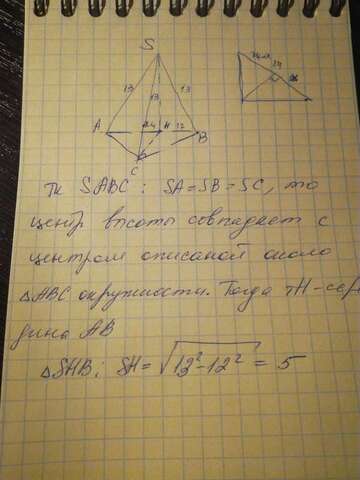 S
13 13 13
A 24 H 12 B
C
24
x
Тк SABC: SA=SB=SC, то
центр высоты совпадает с
центром описаной около
△ABC окружности. Тогда тH-сере
дина AB
△SHB: SH=√13²-12² = 5